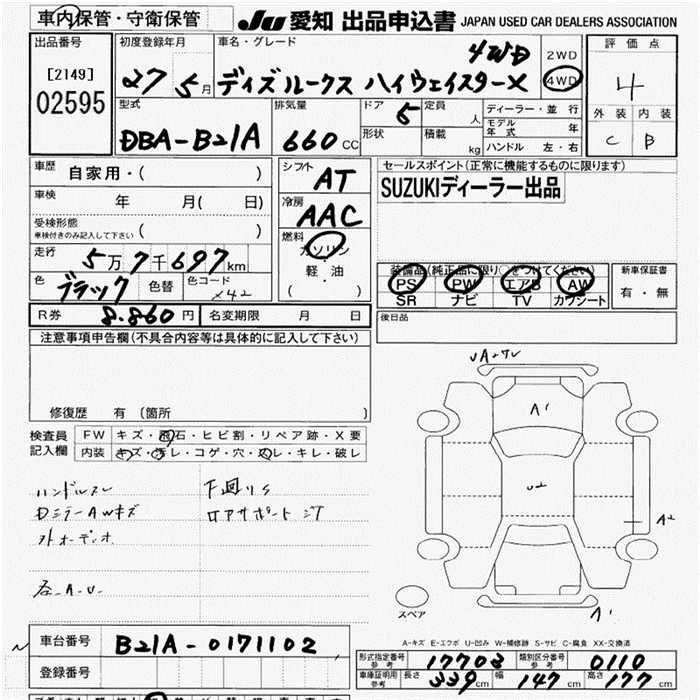 車内保管・守衛保管
JU 愛知 出品申込書 JAPAN USED CAR DEALERS ASSOCIATION
出品番号
[2149]
02595
初度登録年月
27 5月
車名・グレード
4WD
ディズルークス ハイウェイスターX
2WD
4WD
評価点
4
外装 内装
C B
型式
DBA-B21A
排気量
660 CC
ドア 5
形状
定員 人
積載 kg
ディーラー・並行
モデル年式 年
ハンドル 左・右
車歴 自家用・( )
車検 年 月( 日)
受検形態
車検付きのみ記入して下さい ( )
走行 5万7千697km
色 ブラック 色替 色コード X42
シフト AT
冷房 AAC
燃料
ガソリン・
軽・油
( )
セールスポイント(正常に機能するものに限ります)
SUZUKIディーラー出品
装備品(純正品に限り○をつけてください)
PS PW エアB AW
SR ナビ TV カワシート
新車保証書
有・無
R券 8.860円 名変期限 月 日
後日品
注意事項申告欄(不具合内容等は具体的に記入して下さい)
修復歴 有(箇所 )
検査員記入欄
FW キズ・飛石・ヒビ割・リペア跡・X要
内装 キズ・汚レ・コゲ・穴・スレ・キレ・破レ
ハンドルスレ
DミラーAWキズ
外オーディオ
各-A-U-
下廻りS
ロアサポートサT
A1
U2
A2
A1
スペア
A-キズ E-エクボ U-凹み W-補修跡 S-サビ C-腐食 XX-交換済
車台番号 B21A-0171102
登録番号
形式指定番号 参考 17703
類別区分番号 参考 0110
車庫証明用 参考 長さ 339cm 幅 147cm 高さ 177cm